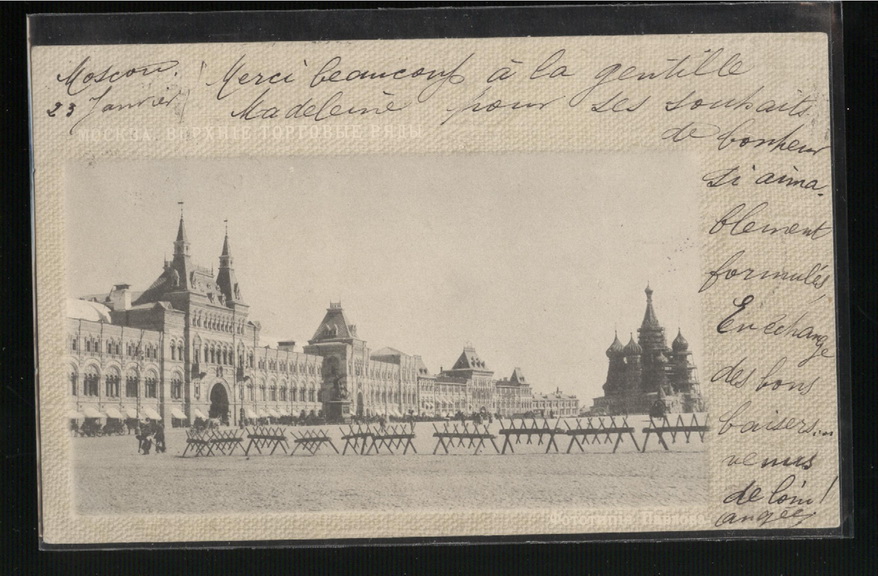 Moscou.
23 Janvier
Merci beaucoup à la gentille
Madeleine pour ses souhaits
de bonheur
si aima-
blement
formulés
En échange
des bons
baisers...
venus
de loin!
МОСКВА. ВЕРХНІЕ ТОРГОВЫЕ РЯДЫ